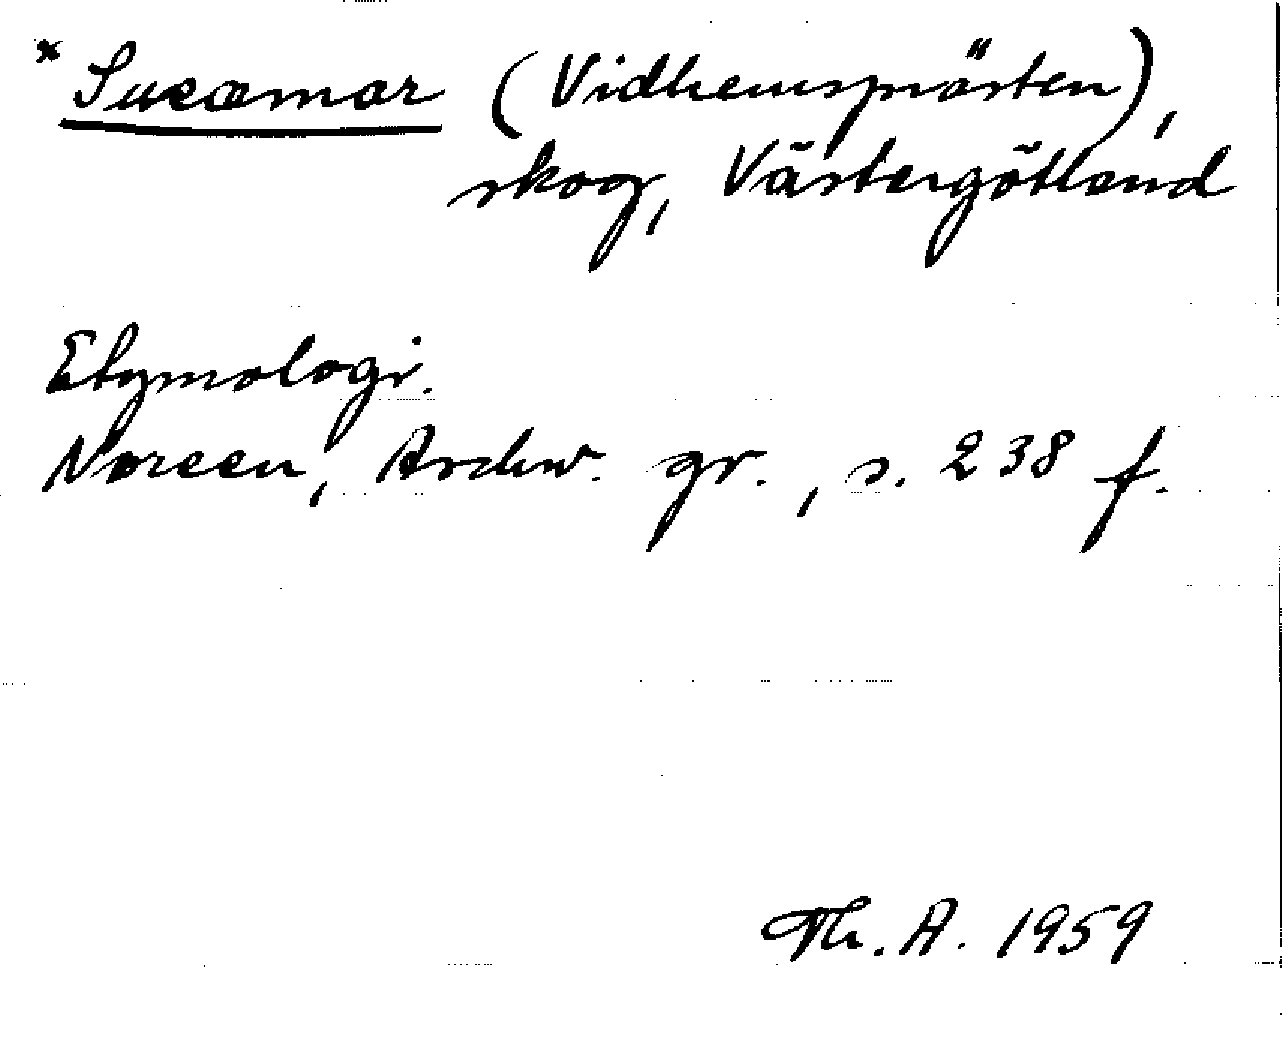 * Sucamar (Vidhemsprästen),
skog, Västergötland
Etymologi.
Noreen, Aschw. gr., s. 238 f.
Th. A. 1959